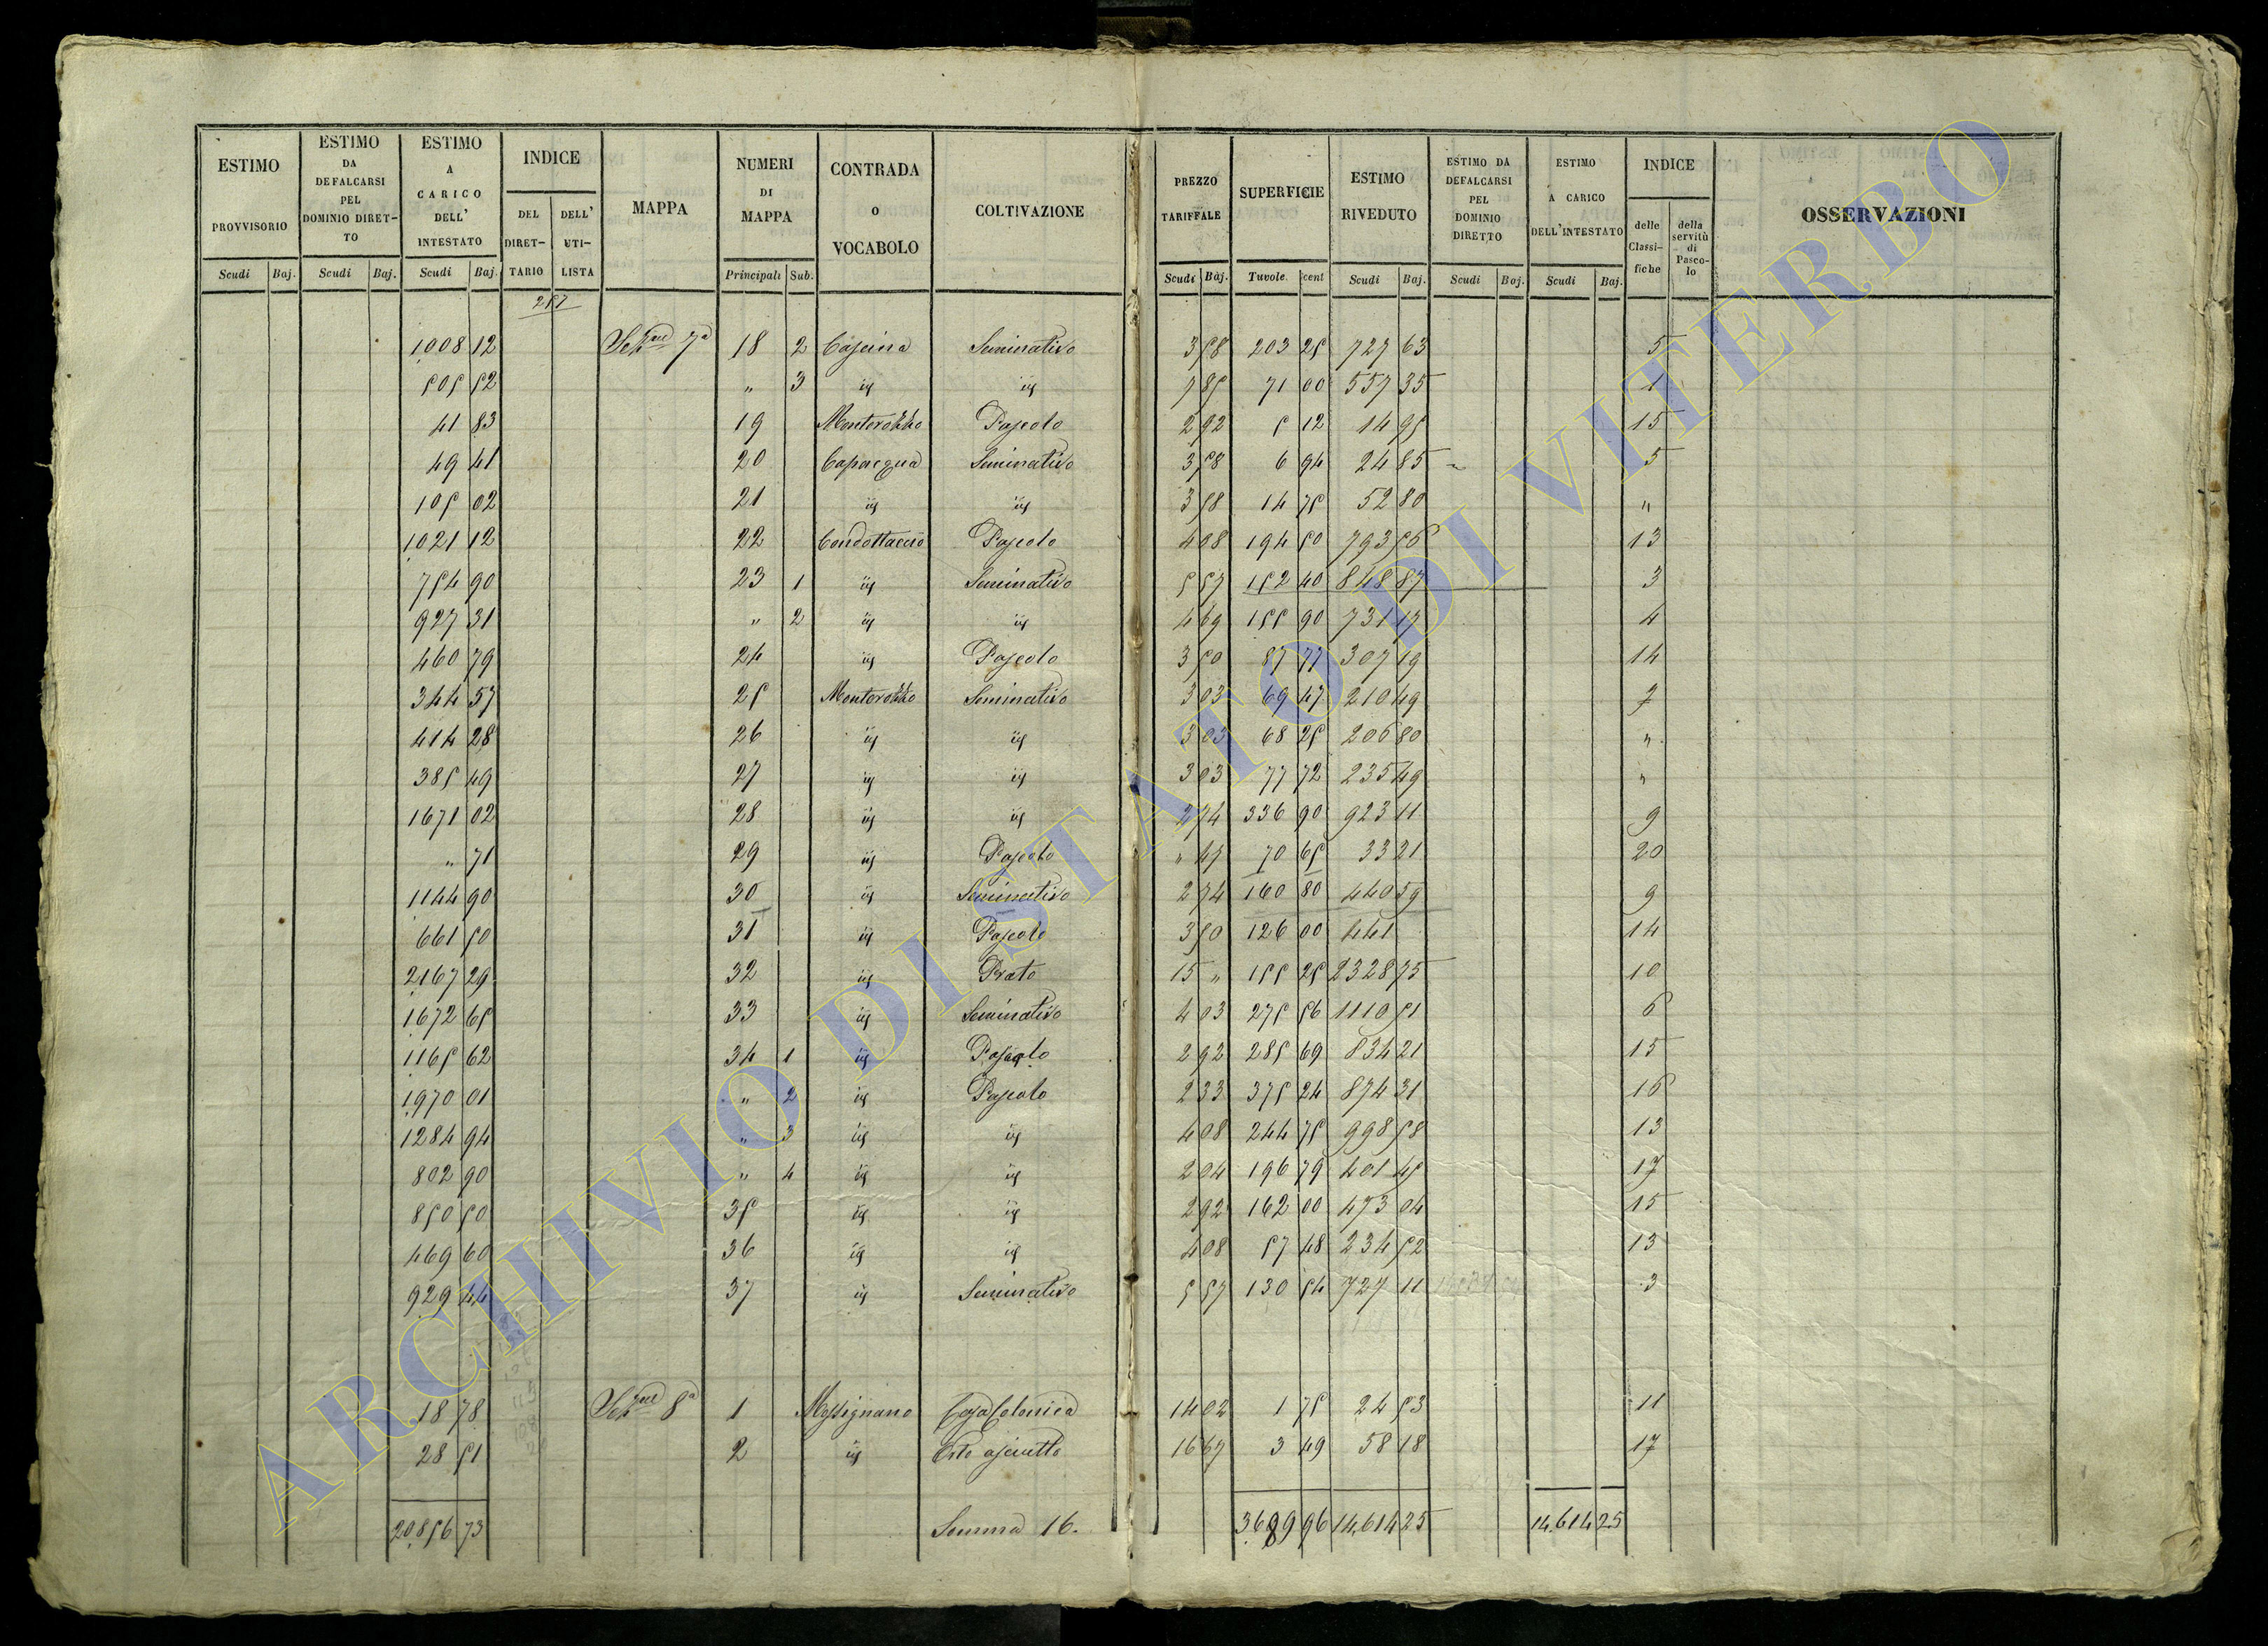 ESTIMO PROVVISORIO Scudi Baj. | ESTIMO DA DEFALCARSI PEL DOMINIO DIRETTO Scudi Baj. | ESTIMO A CARICO DELL' INTESTATO Scudi Baj. | INDICE DEL DIRETTARIO DELL' UTILISTA | MAPPA | NUMERI DI MAPPA Principali Sub. | CONTRADA o VOCABOLO | COLTIVAZIONE | PREZZO TARIFFALE Scudi Baj. | SUPERFICIE Tavole cent | ESTIMO RIVEDUTO Scudi Baj. | ESTIMO DA DEFALCARSI PEL DOMINIO DIRETTO Scudi Baj. | ESTIMO A CARICO DELL'INTESTATO Scudi Baj. | INDICE delle Classifiche della servitù di Pascolo | OSSERVAZIONI
257
1008 12 Sezne 7a 18 2 Cascina Seminativo 3 58 203 25 727 63 5
505 52 " 3 id id 7 85 71 00 557 35 1
41 83 19 Monterozzo Pascolo 2 92 5 12 14 95 15
49 41 20 Capacqua Seminativo 3 58 6 94 24 85 5
105 02 21 id id 3 58 14 75 52 80 "
1021 12 22 Condottaccio Pascolo 4 08 194 50 793 56 13
754 90 23 1 id Seminativo 5 57 152 40 848 87 3
927 31 " 2 id id 4 69 155 90 731 17 4
460 79 24 id Pascolo 3 50 87 77 307 19 14
344 57 25 Monterozzo Seminativo 3 03 69 47 210 49 7
414 28 26 id id 3 03 68 25 206 80 "
385 49 27 id id 3 03 77 72 235 49 "
1671 02 28 id id 2 74 336 90 923 11 9
" 71 29 id Pascolo " 47 70 65 33 21 20
1144 90 30 id Seminativo 2 74 160 80 440 59 9
661 50 31 id Pascolo 3 50 126 00 441 14
2167 29 32 id Prato 15 " 155 25 2328 75 10
1672 65 33 id Seminativo 4 03 275 56 1110 51 6
1165 62 34 1 id Pascolo 2 92 285 69 834 21 15
1970 01 " 2 id Pascolo 2 33 375 24 874 31 16
1284 94 " 3 id id 4 08 244 75 998 58 13
802 90 " 4 id id 2 04 196 79 401 45 17
850 50 35 id id 2 92 162 00 473 04 15
469 60 36 id id 4 08 57 48 234 52 13
929 44 37 id Seminativo 5 57 130 54 727 11 3
18 78 Sezne 8a 1 Massignano Casa Colonica 14 02 1 75 24 53 11
28 51 2 id Orto asciutto 16 67 3 49 58 18 17
20856 73 Somma 16. 3689 96 14614 25 14614 25
ARCHIVIO DI STATO DI VITERBO